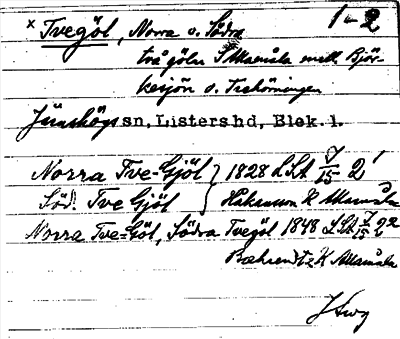 x Tvegöl, Norra o. Södra 1-2
två gölar S Allamåla mell. Björ-
kesjön o. Trehörningen
Jämshögs sn, Listers hd, Blek. l.
Norra Tve-Gjöl } 1828 LSA J/15 2'
Söd: Tve Gjöl } Håkanson K Allamåla
Norra Tve-Göl, Södra Tvegöl 1848 LSA J/15 22
Bæhrendtz K Allamåla